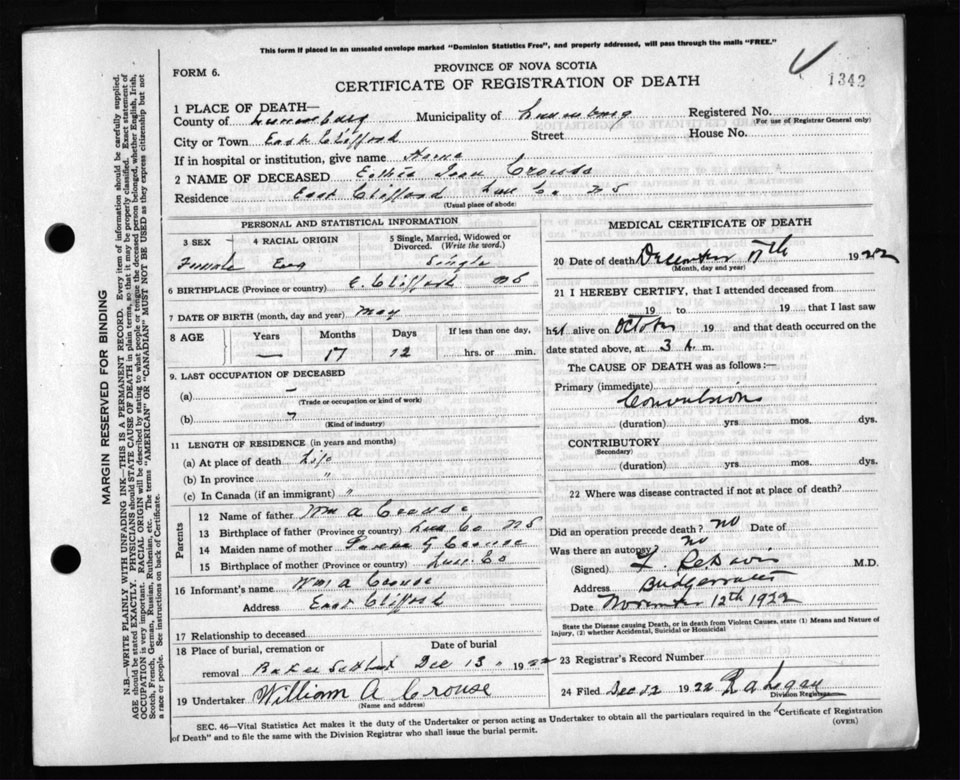 This form if placed in an unsealed envelope marked "Dominion Statistics Free", and properly addressed, will pass through the mails "FREE."
1342
FORM 6.
PROVINCE OF NOVA SCOTIA
CERTIFICATE OF REGISTRATION OF DEATH
1 PLACE OF DEATH—
County of Lunenburg Municipality of Lunenburg Registered No.
(For use of Registrar General only)
City or Town East Clifford Street House No.
If in hospital or institution, give name Home
2 NAME OF DECEASED Jean Crouse
Residence East Clifford Lun Co N S
(Usual place of abode)
PERSONAL AND STATISTICAL INFORMATION
3 SEX 4 RACIAL ORIGIN 5 Single, Married, Widowed or Divorced. (Write the word.)
Female Eng Single
6 BIRTHPLACE (Province or country) E. Clifford N S
7 DATE OF BIRTH (month, day and year) May
8 AGE Years Months Days If less than one day,
— 17 12 hrs. or min.
9. LAST OCCUPATION OF DECEASED
(a) —
(Trade or occupation or kind of work)
(b)
(Kind of industry)
11 LENGTH OF RESIDENCE (in years and months)
(a) At place of death Life
(b) In province "
(c) In Canada (if an immigrant) "
Parents
12 Name of father Wm A Crouse
13 Birthplace of father (Province or country) Lun Co N S
14 Maiden name of mother G Crouse
15 Birthplace of mother (Province or country) Lun. Co
16 Informant's name Wm A Crouse
Address East Clifford
17 Relationship to deceased
18 Place of burial, cremation or removal Date of burial
Baker Dec 13 " 1922
19 Undertaker William A Crouse
(Name and address)
MEDICAL CERTIFICATE OF DEATH
20 Date of death December 1922
(Month, day and year)
21 I HEREBY CERTIFY, that I attended deceased from
19 to 19 that I last saw
her alive on October 19 and that death occurred on the
date stated above, at 3 m.
The CAUSE OF DEATH was as follows:—
Primary (immediate)
Convulsions
(duration) yrs mos. dys.
CONTRIBUTORY
(Secondary)
(duration) yrs mos. dys.
22 Where was disease contracted if not at place of death?
Did an operation precede death? no Date of
Was there an autopsy? no
(Signed) Davis M.D.
Address Bridgewater
Date November 12th 1922
State the Disease causing Death, or in death from Violent Causes, state (1) Means and Nature of
Injury, (2) whether Accidental, Suicidal or Homicidal
23 Registrar's Record Number
24 Filed Dec 12 1922
Division Registrar
SEC. 46—Vital Statistics Act makes it the duty of the Undertaker or person acting as Undertaker to obtain all the particulars required in the Certificate of Registration
of Death" and to file the same with the Division Registrar who shall issue the burial permit. (OVER)
MARGIN RESERVED FOR BINDING
N.B.—WRITE PLAINLY WITH UNFADING INK—THIS IS A PERMANENT RECORD. Every item of information should be carefully supplied.
AGE should be stated EXACTLY. PHYSICIANS should STATE CAUSE OF DEATH in plain terms, so that it may be properly classified. Exact statement of
OCCUPATION is very important. RACIAL ORIGIN will be described by stating to what people or tongue the deceased person belonged, whether English, Irish,
Scotch, French, German, Russian, Ruthenian, etc. The terms "AMERICAN" OR "CANADIAN" MUST NOT BE USED as they express citizenship but not
a race or people. See instructions on back of Certificate.